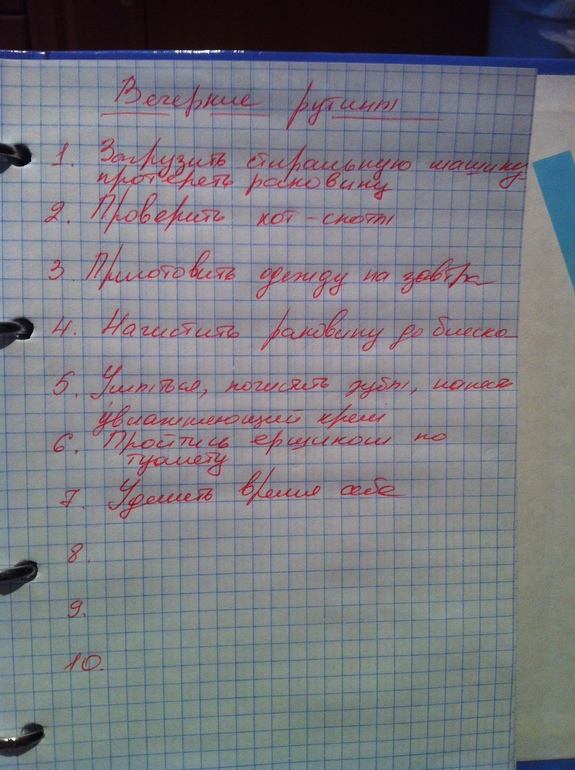 Вечерние рутины
1. Загрузить стиральную машину,
протереть раковину
2. Проверить хот-споты
3. Приготовить одежду на завтра
4. Начистить раковину до блеска
5. Умыться, почистить зубы,
увлажняющий крем
6. Пройтись ершиком по
туалету
7. Уделить время себе
8.
9.
10.